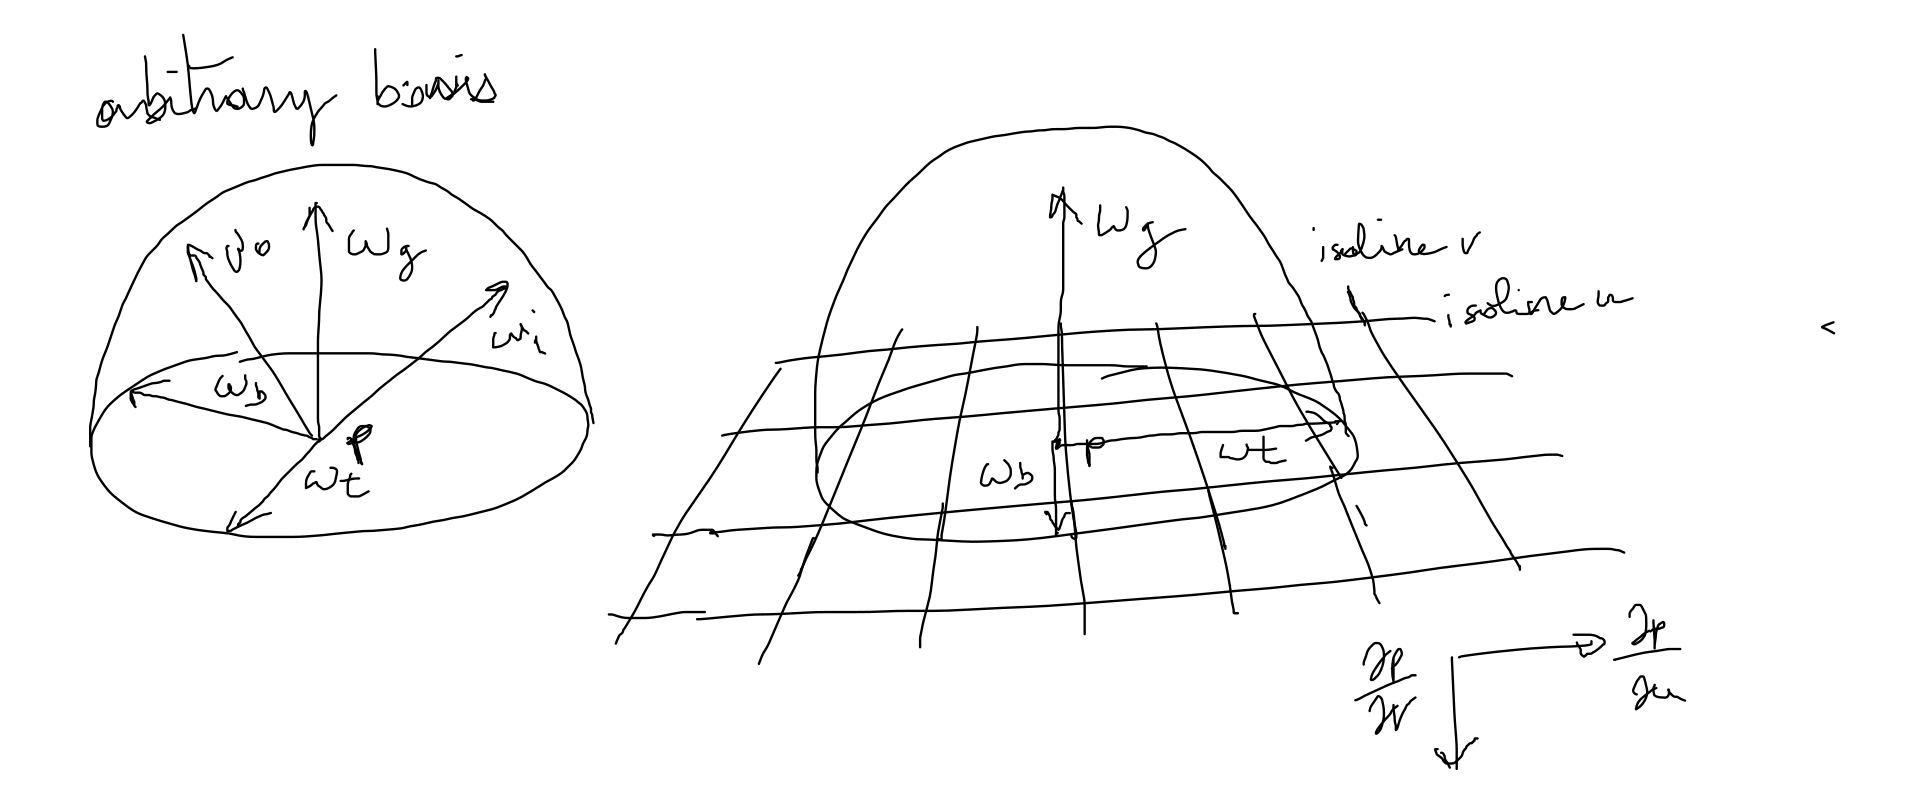 arbitrary basis
νo
ωg
ωi
ωb
p
ωt
ωg
isoline v
isoline u
p
ωt
ωb
∂p/∂v
∂p/∂u
<